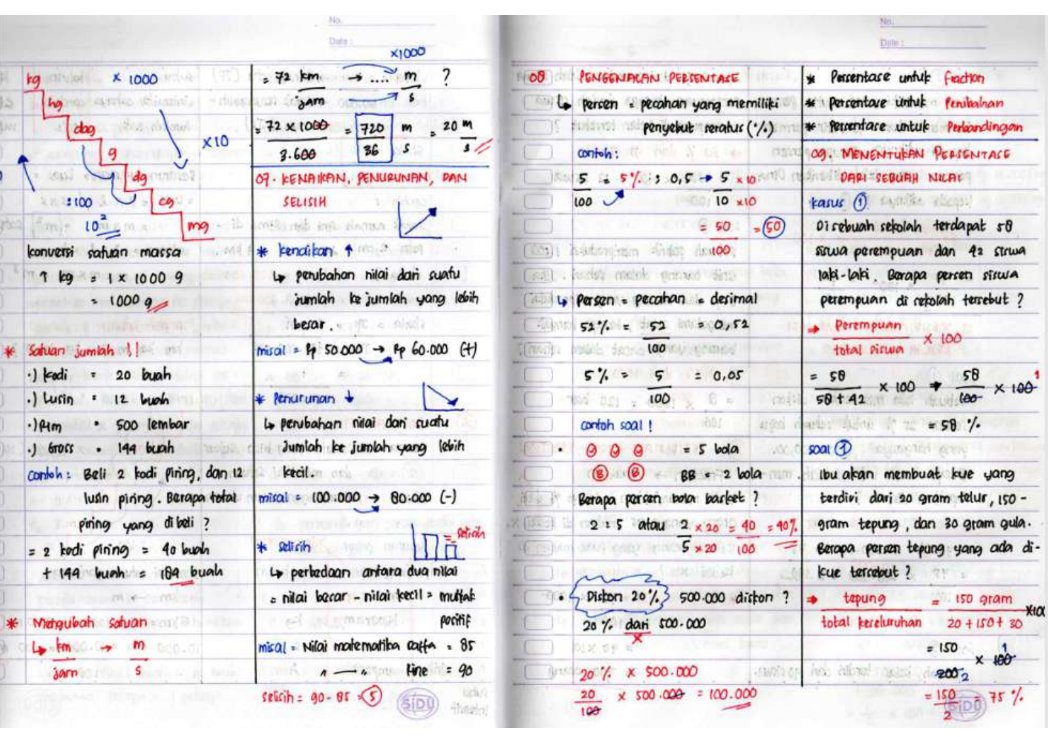 No.
Date :
kg
× 1000
hg
dag
×10
g
dg
:100
cg
10²
mg
konversi satuan massa
1 kg = 1 x 1000 g
= 1000 g
* Satuan jumlah !!
·) Kodi = 20 buah
·) Lusin = 12 buah
·) Rim = 500 lembar
·) Gross = 144 buah
contoh : Beli 2 kodi piring, dan 12
lusin piring. Berapa total
piring yang di beli ?
= 2 kodi piring = 40 buah
+ 144 buah = 184 buah
* Mengubah satuan
↳ km → m
jam s
×1000
= 72 km → .... m ?
jam s
= 72 x 1000 = 720 m = 20 m
3.600 36 s s
07. KENAIKAN, PENURUNAN, DAN
SELISIH
* Kenaikan ↑
↳ perubahan nilai dari suatu
jumlah ke jumlah yang lebih
besar.
misal = Rp 50.000 → Rp 60.000 (+)
* Penurunan ↓
↳ perubahan nilai dari suatu
jumlah ke jumlah yang lebih
kecil.
misal = 100.000 → 80.000 (-)
* Selisih
= selisih
↳ perbedaan antara dua nilai
= nilai besar - nilai kecil = mutlak
positif
misal = Nilai matematika Raffa = 85
" — " Fine = 90
selisih = 90 - 85 = 5
SIDU
No.
Date :
08 PENGENALAN PERSENTASE
↳ Persen = pecahan yang memiliki
penyebut seratus (%)
contoh :
5 = 5% : 0,5 → 5 x 10
100 10 x10
= 50 = 50
100
↳ Persen = pecahan = desimal
52% = 52 = 0,52
100
5% = 5 = 0,05
100
contoh soal !
· = 5 bola
B B BB = 2 bola
Berapa persen bola basket ?
2 = 5 atau 2 x 20 = 40 = 40%
5 x 20 100
· Diskon 20% 500.000 diskon ?
20 % dari 500.000
x
20 % x 500.000
20 x 500.000 = 100.000
100
* Persentase untuk fraction
* Persentase untuk Perubahan
* Persentase untuk Perbandingan
09. MENENTUKAN PERSENTASE
DARI SEBUAH NILAI
kasus 1
Di sebuah sekolah terdapat 58
siswa perempuan dan 42 siswa
laki-laki. Berapa persen siswa
perempuan di sekolah tersebut ?
→ Perempuan x 100
total siswa
= 58 x 100 → 58 x 100 1
58 + 42 100
= 58 %
soal 1
Ibu akan membuat kue yang
terdiri dari 20 gram telur, 150 -
gram tepung, dan 30 gram gula.
Berapa persen tepung yang ada di-
kue tersebut ?
→ tepung = 150 gram x100
total keseluruhan 20 + 150 + 30
= 150 x 100 1
200 2
= 150 = 75 %
2
SIDU